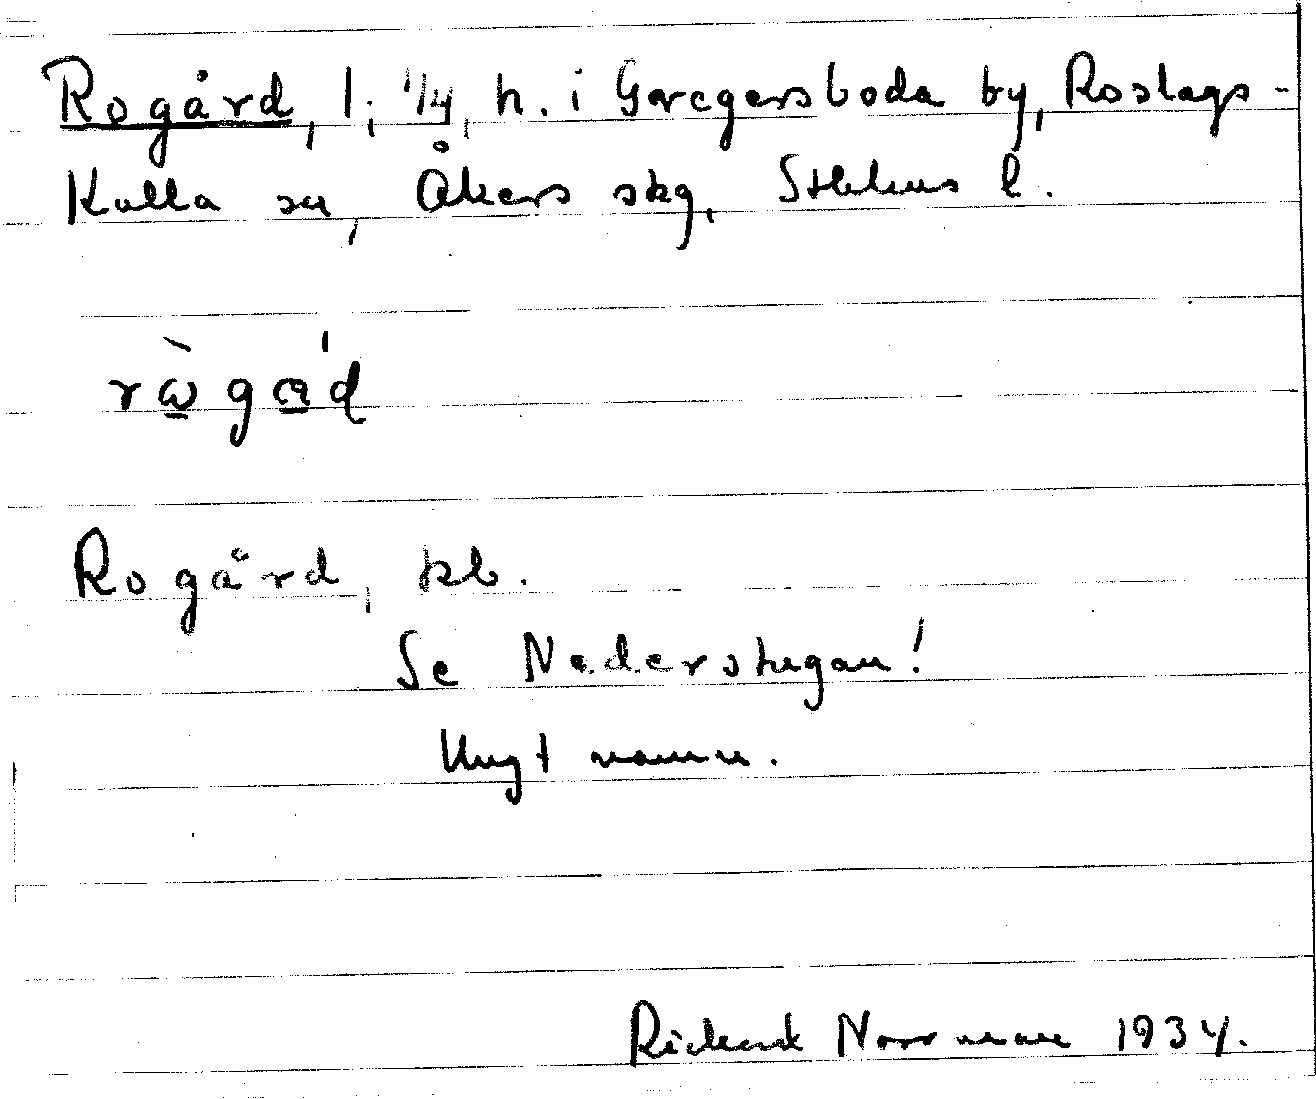 Rogård, l; 1/4, h. i Goregersboda by, Roslags-
Kulla sn, Åkers skg, Sthlms l.
Rogård, kb.
Se Nederstugan!
Ungt namn.
Rickard Norrman 1934.